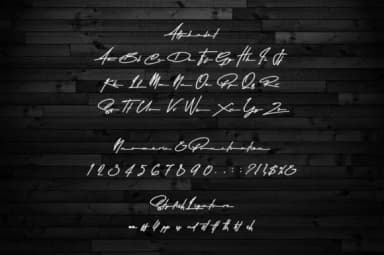 Alphabet
Aa Bb Cc Dd Ee Ff Gg Hh Ii Jj
Kk Ll Mm Nn Oo Pp Qq Rr
Ss Tt Uu Vv Ww Xx Yy Zz
Numeric & Punctuation
1 2 3 4 5 6 7 8 9 0
Stylish Ligature